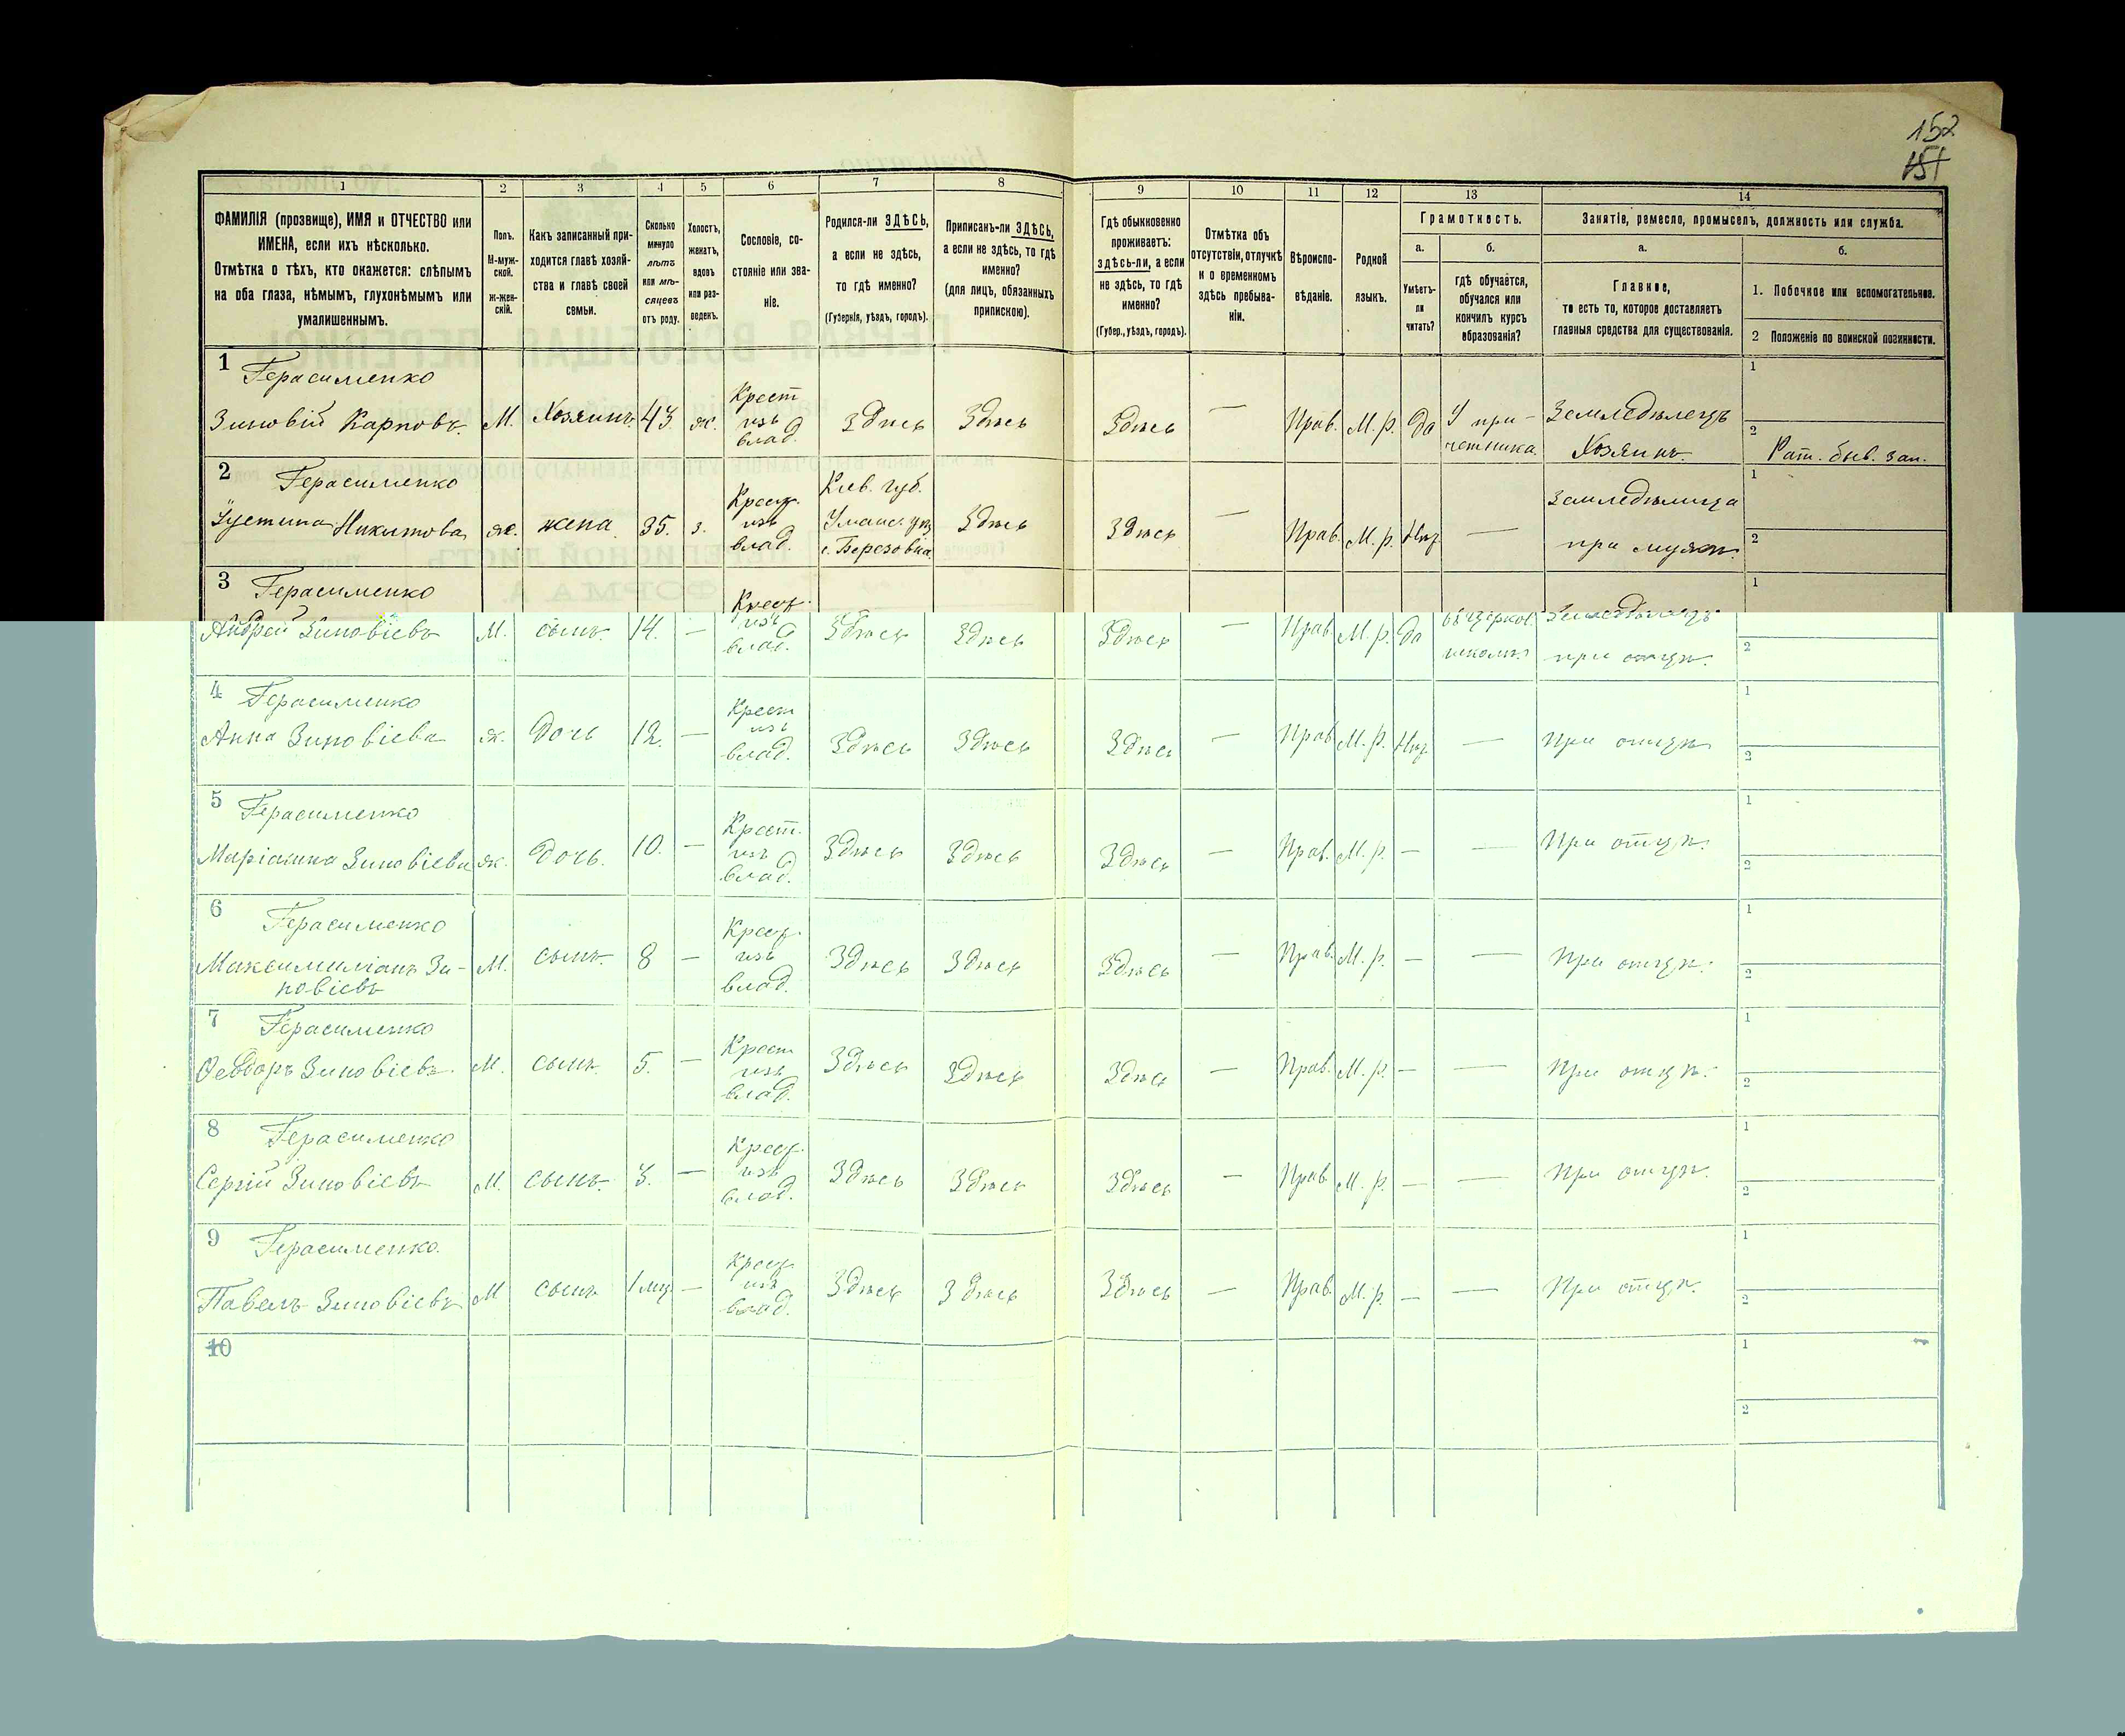 152
151
1
2
3
4
5
6
7
8
9
10
11
12
13
14
ФАМИЛІЯ (прозвище), ИМЯ и ОТЧЕСТВО или
ИМЕНА, если ихъ нѣсколько.
Отмѣтка о тѣхъ, кто окажется: слѣпымъ
на оба глаза, нѣмымъ, глухонѣмымъ или
умалишеннымъ.
Полъ.
М-муж-
ской.
ж-жен-
скій.
Какъ записанный при-
ходится главѣ хозяй-
ства и главѣ своей
семьи.
Сколько
минуло
лѣтъ
или мѣ-
сяцевъ
отъ роду.
Холостъ,
женатъ,
вдовъ
или раз-
веденъ.
Сословіе, со-
стояніе или зва-
ніе.
Родился-ли ЗДѢСЬ,
а если не здѣсь,
то гдѣ именно?
(Губернія, уѣздъ, городъ).
Приписанъ-ли ЗДѢСЬ,
а если не здѣсь, то гдѣ
именно?
(для лицъ, обязанныхъ
припискою).
Гдѣ обыкновенно
проживаетъ:
здѣсь-ли, а если
не здѣсь, то гдѣ
именно?
(Губер., уѣздъ, городъ).
Отмѣтка объ
отсутствіи, отлучкѣ
и о временномъ
здѣсь пребыва-
ніи.
Вѣроиспо-
вѣданіе.
Родной
языкъ.
Грамотность.
а.
Умѣетъ-
ли
читать?
б.
гдѣ обучается,
обучался или
кончилъ курсъ
образованія?
Занятіе, ремесло, промыселъ, должность или служба.
а.
Главное,
то есть то, которое доставляетъ
главныя средства для существованія.
б.
1. Побочное или вспомогательное.
2 Положеніе по воинской повинности.
1 Герасименко
Зиновій Карповъ. М. Хозяинъ 43 ж. Крест изъ влад. Здѣсь Здѣсь Здѣсь — Прав. М. р. да У при-четника. Земледѣлецъ Хозяинъ. 1 2 Рат. быв. зап.
2 Герасименко
Устина Никитова ж. жена 35. з. Крест. изъ влад. Кіев. губ. Уманс. уѣз. с. Березовка Здѣсь Здѣсь — Прав. М. р. Нѣт — Земледѣлица при мужѣ. 1 2
3 Герасименко
Андрей Зиновіевъ М. сынъ. 14. — Крест. изъ влад. Здѣсь Здѣсь Здѣсь — Прав. М. р. да въ церков. школѣ. Земледѣлецъ при отцѣ. 1 2
4 Герасименко
Анна Зиновіева ж. Дочь 12. — Крест изъ влад. Здѣсь Здѣсь Здѣсь — Прав М. р. Нѣт — При отцѣ 1 2
5 Герасименко
Маріанна Зиновіева ж. Дочь. 10. — Крест. изъ влад. Здѣсь Здѣсь Здѣсь — Прав. М. р. — — При отцѣ. 1 2
6 Герасименко
Максиміліанъ Зи-
новіевъ М. сынъ. 8 — Крест. изъ влад. Здѣсь Здѣсь Здѣсь — Прав. М. р. — — При отцѣ. 1 2
7 Герасименко
Ѳеодоръ Зиновіевъ. М. сынъ. 5. — Крест изъ влад. Здѣсь Здѣсь Здѣсь — Прав. М. р. — — При отцѣ. 1 2
8 Герасименко
Сергій Зиновіевъ М. сынъ. 3. — Крест. изъ влад. Здѣсь Здѣсь Здѣсь — Прав. М. р. — — При отцѣ. 1 2
9 Герасименко.
Павелъ Зиновіевъ М сынъ 1 мц — Крест. изъ влад. Здѣсь Здѣсь Здѣсь — Прав. М. р. — — При отцѣ. 1 2
10 1 2